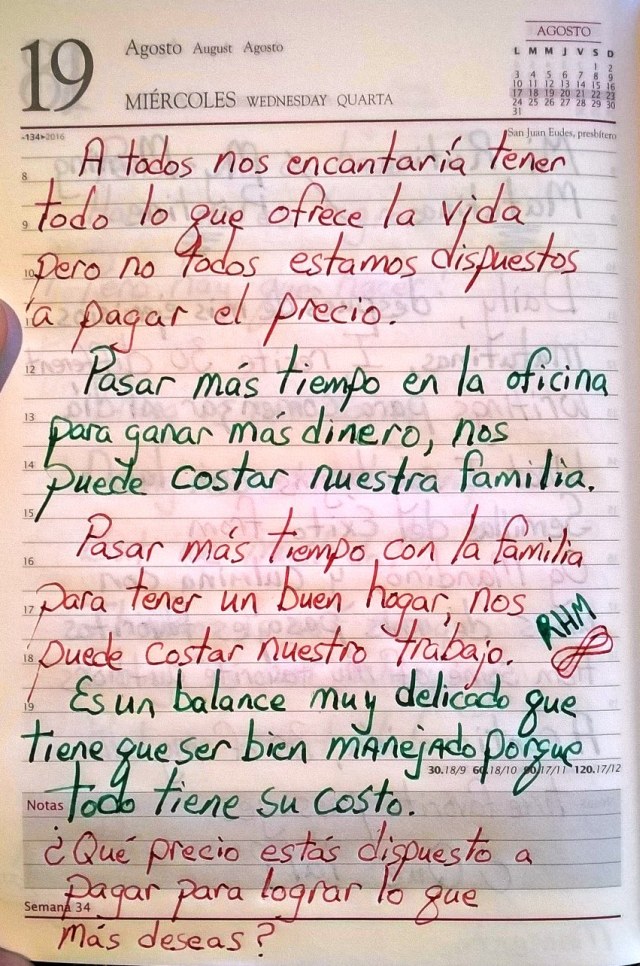 19
Agosto August Agosto
MIÉRCOLES WEDNESDAY QUARTA
AGOSTO
L M M J V S D
1 2
3 4 5 6 7 8 9
10 11 12 13 14 15 16
17 18 19 20 21 22 23
24 25 26 27 28 29 30
31
-134>2016
San Juan Eudes, presbítero
8 A todos nos encantaría tener
9 todo lo que ofrece la vida
10 pero no todos estamos dispuestos
a pagar el precio.
12 Pasar más tiempo en la oficina
13 para ganar más dinero, nos
14 puede costar nuestra familia.
15
16 Pasar más tiempo con la familia
17 para tener un buen hogar, nos
RHM
18 puede costar nuestro trabajo.
19 Es un balance muy delicado que
tiene que ser bien mANejADo porque
30.18/9 60.18/10 90.17/11 120.17/12
Notas Todo tiene su costo.
¿Qué precio estás dispuesto a
pagar para lograr lo que
Semana 34
más deseas?